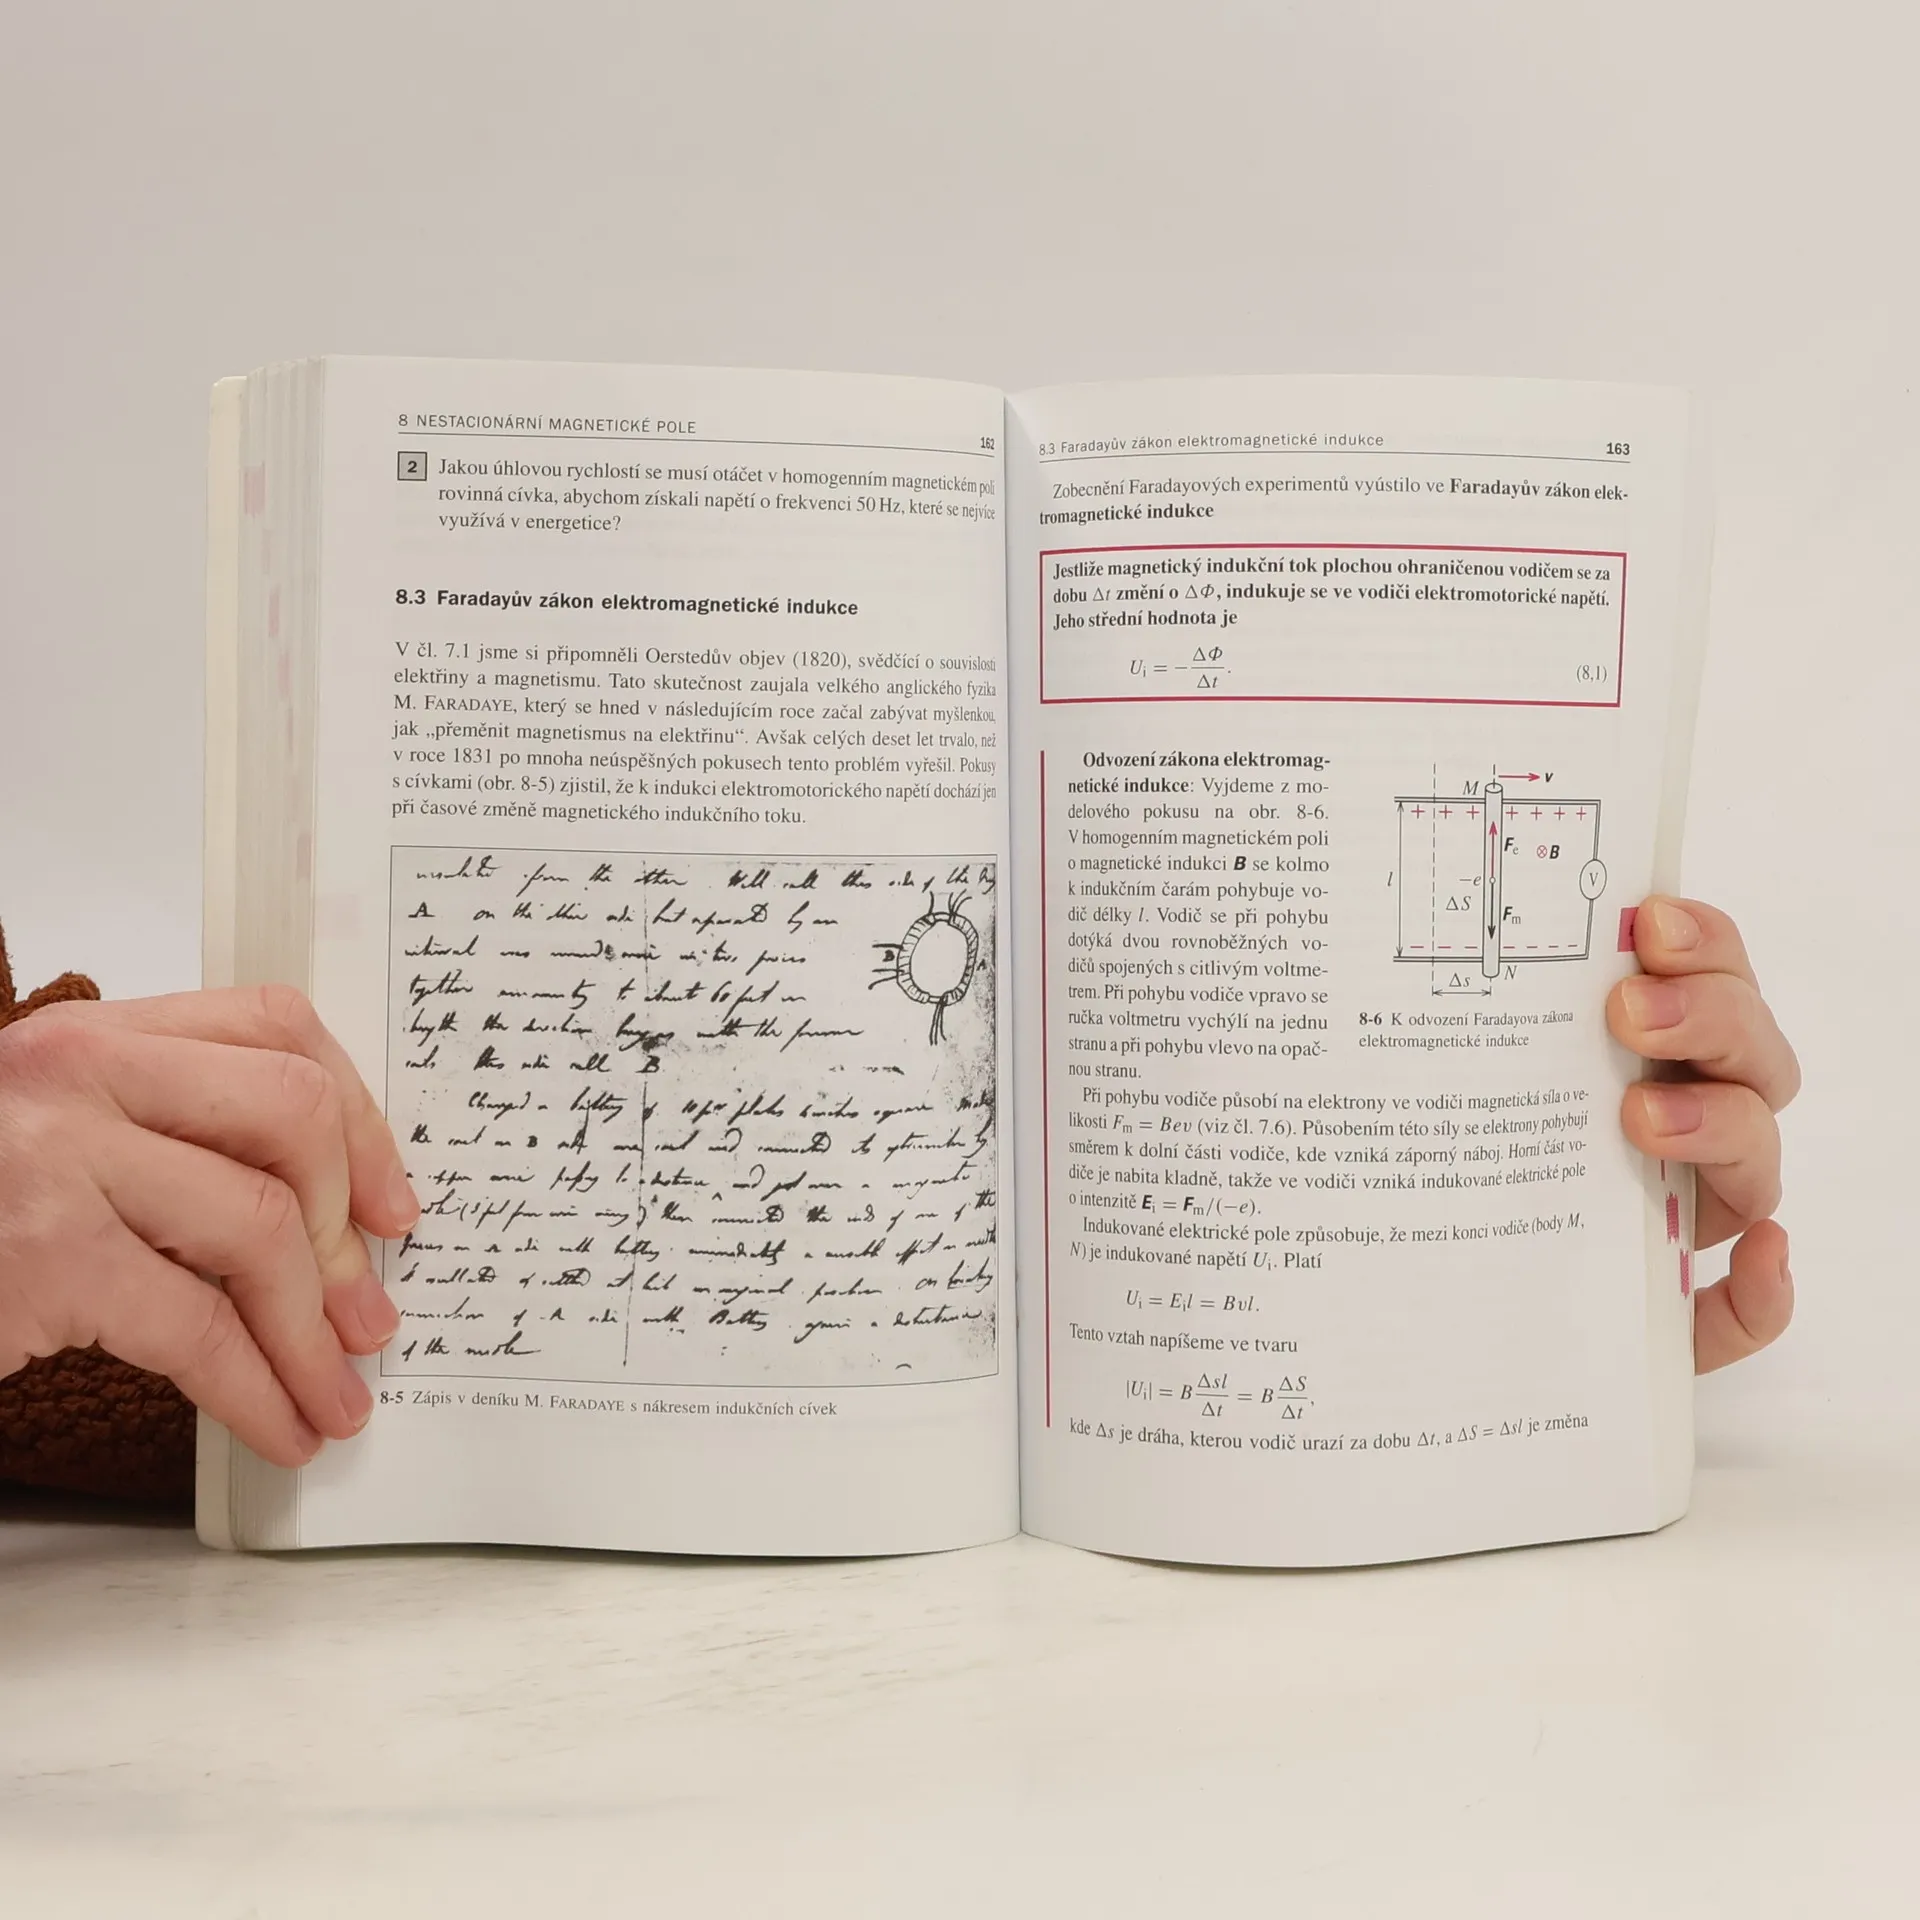 8 NESTACIONÁRNÍ MAGNETICKÉ POLE
162
2 Jakou úhlovou rychlostí se musí otáčet v homogenním magnetickém poli
rovinná cívka, abychom získali napětí o frekvenci 50 Hz, které se nejvíce
využívá v energetice?
8.3 Faradayův zákon elektromagnetické indukce
V čl. 7.1 jsme si připomněli Oerstedův objev (1820), svědčící o souvislosti
elektřiny a magnetismu. Tato skutečnost zaujala velkého anglického fyzika
M. FARADAYE, který se hned v následujícím roce začal zabývat myšlenkou,
jak „přeměnit magnetismus na elektřinu“. Avšak celých deset let trvalo, než
v roce 1831 po mnoha neúspěšných pokusech tento problém vyřešil. Pokusy
s cívkami (obr. 8-5) zjistil, že k indukci elektromotorického napětí dochází jen
při časové změně magnetického indukčního toku.
from the other. Will call this side of the
A on the other side but separated by an
interval was wound wire in two pieces
together to about 60 feet in
the direction with the former
coils this side call B
Charged a battery of 10 plates 4 inches square made
the coil on B side one coil and connected its by
a copper wire to a distance and over a
then connected the ends of one of the
on A side with battery
B
A
of A side with Battery again a disturbance
of the needle
8-5 Zápis v deníku M. FARADAYE s nákresem indukčních cívek
8.3 Faradayův zákon elektromagnetické indukce
163
Zobecnění Faradayových experimentů vyústilo ve Faradayův zákon elek-
tromagnetické indukce
Jestliže magnetický indukční tok plochou ohraničenou vodičem se za
dobu Δt změní o ΔΦ, indukuje se ve vodiči elektromotorické napětí.
Jeho střední hodnota je
Uᵢ = −ΔΦ/Δt. (8,1)
Odvození zákona elektromag-
netické indukce: Vyjdeme z mo-
delového pokusu na obr. 8-6.
V homogenním magnetickém poli
o magnetické indukci B se kolmo
k indukčním čarám pohybuje vo-
dič délky l. Vodič se při pohybu
dotýká dvou rovnoběžných vo-
dičů spojených s citlivým voltme-
trem. Při pohybu vodiče vpravo se
ručka voltmetru vychýlí na jednu
stranu a při pohybu vlevo na opač-
nou stranu.
M v
+ + + + + + +
Fe ⊗B
l −e V
ΔS Fm
− − − − − − −
Δs N
8-6 K odvození Faradayova zákona
elektromagnetické indukce
Při pohybu vodiče působí na elektrony ve vodiči magnetická síla o ve-
likosti Fm = Bev (viz čl. 7.6). Působením této síly se elektrony pohybují
směrem k dolní části vodiče, kde vzniká záporný náboj. Horní část vo-
diče je nabita kladně, takže ve vodiči vzniká indukované elektrické pole
o intenzitě Eᵢ = Fm/(−e).
Indukované elektrické pole způsobuje, že mezi konci vodiče (body M,
N) je indukované napětí Uᵢ. Platí
Uᵢ = Eᵢl = Bvl.
Tento vztah napíšeme ve tvaru
|Uᵢ| = B Δsl/Δt = B ΔS/Δt,
kde Δs je dráha, kterou vodič urazí za dobu Δt, a ΔS = Δsl je změna